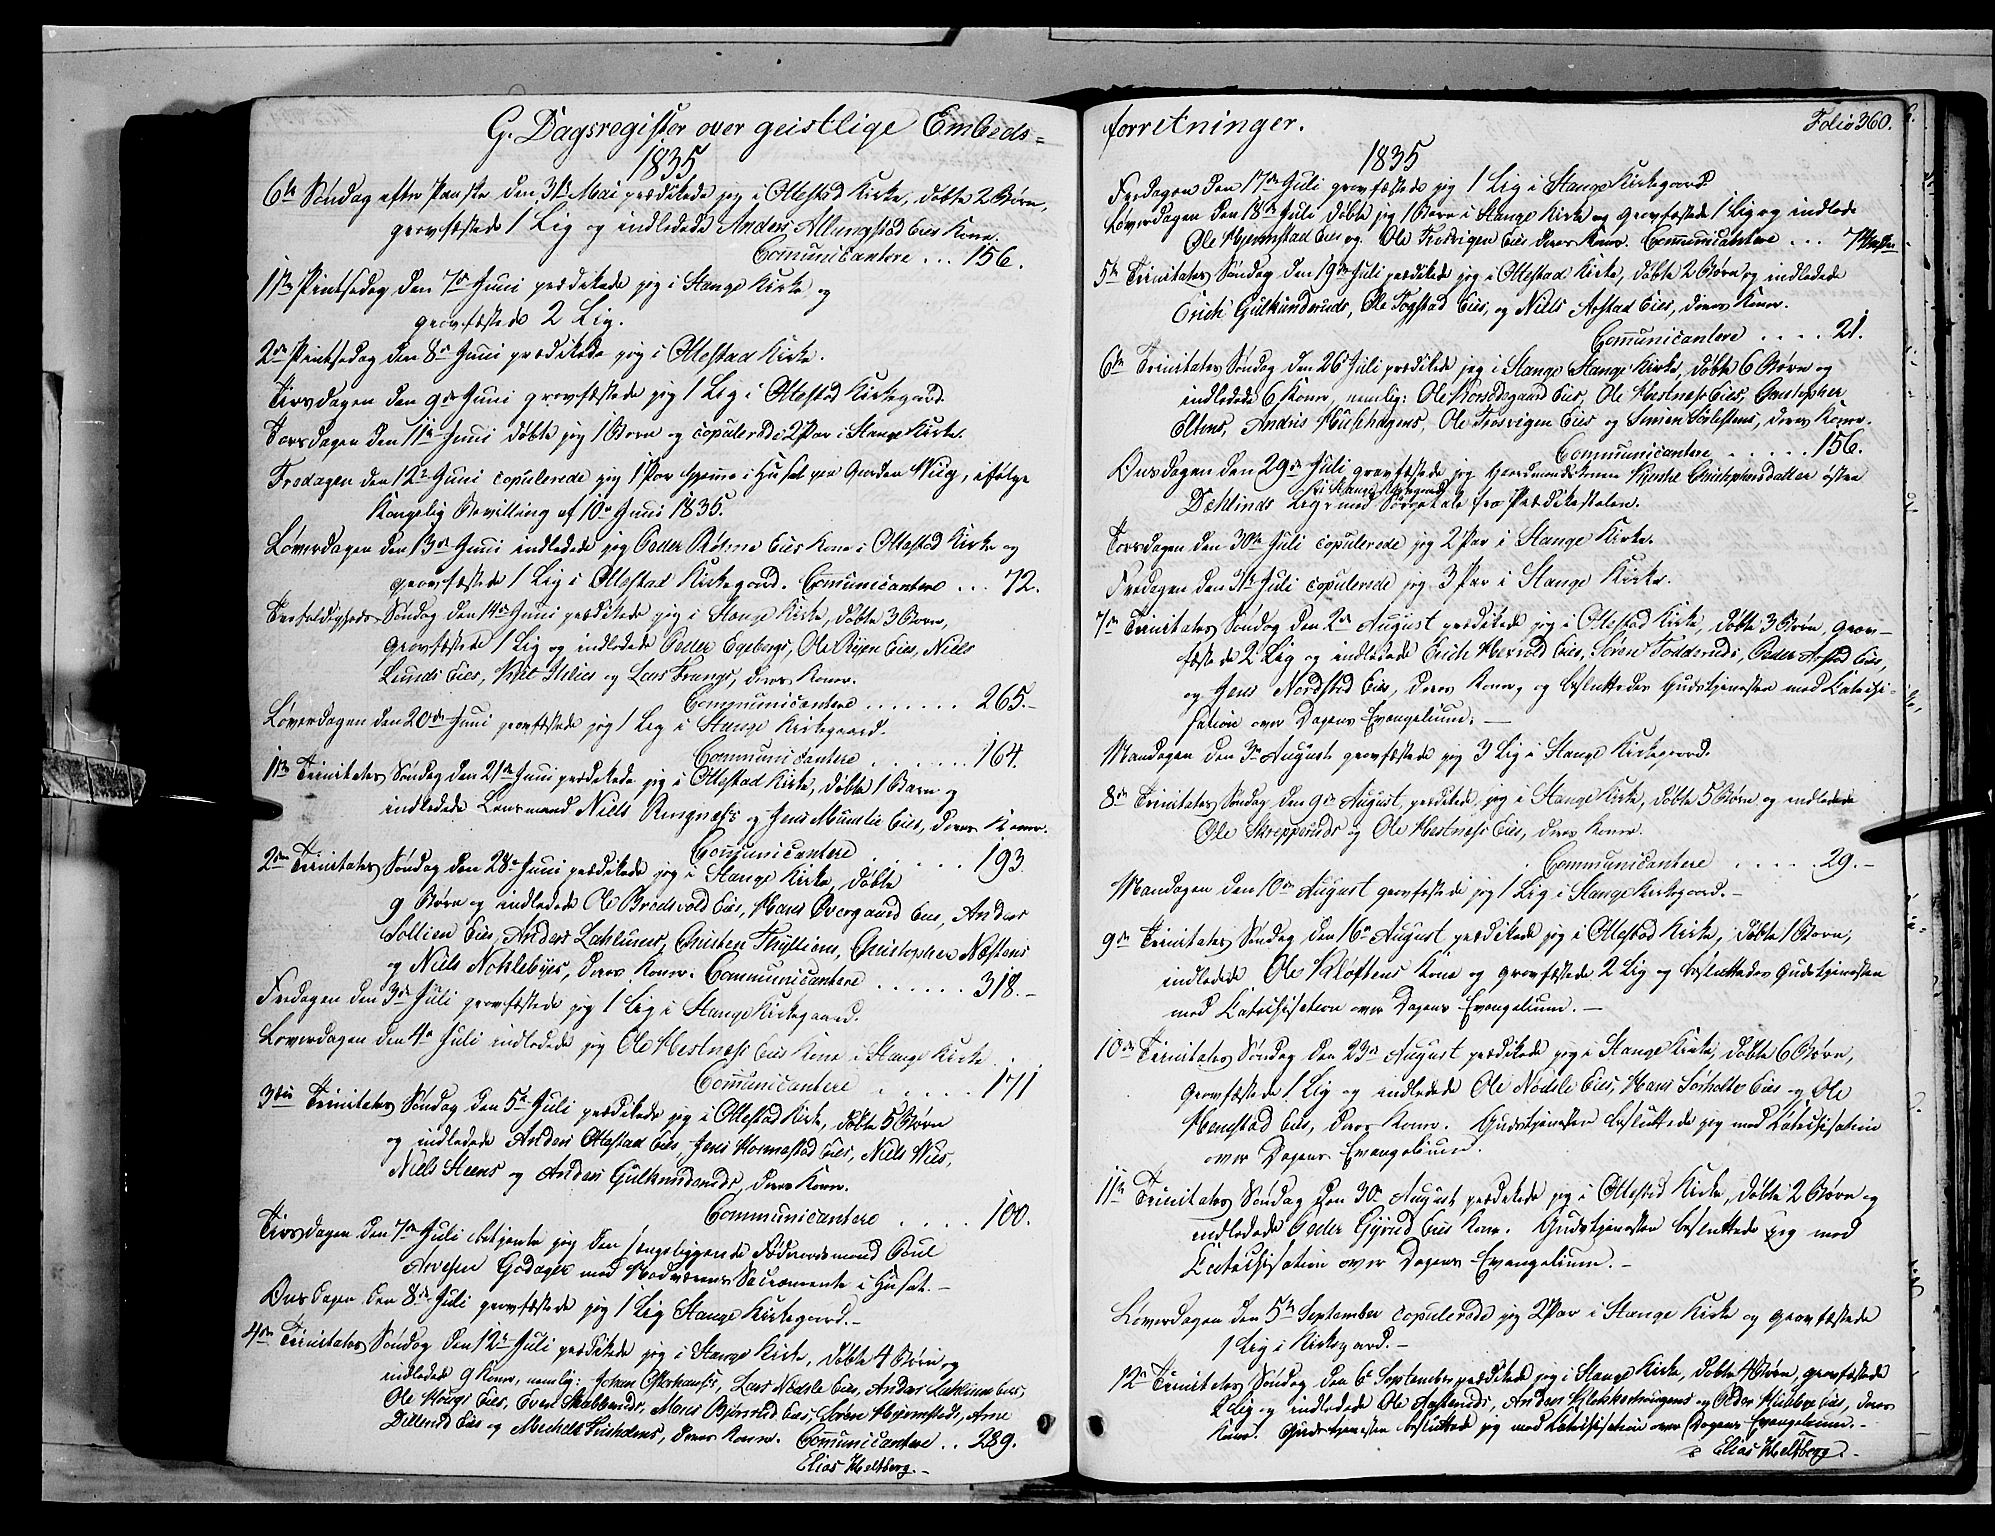 G. Dagsregister over geistlige Embeds=
1835
6te Søndag efter Paaske den 31te Mai prædikede jeg i Ottestad Kirke, døbte 2 Børn,
gravfæstede 1 Lig og indledede Anders Eies Kone.
Communicantere ... 156.
1ste Pintsedag den 7de Juni prædikede jeg i Stange Kirke og
gravfæstede 2 Lig.
2den Pintsedag den 8de Juni prædikede jeg i Ottestad Kirke.
Tirsdagen den 9de Juni gravfæstede jeg 1 Lig i Ottestad Kirkegaard.
Torsdagen den 11te Juni døbte jeg 1 Barn og copulerede 2 Par i Stange Kirke.
Fredagen den 12te Juni copulerede jeg 1 Par hjemme i Huset paa Gaarden Wiig, ifølge
Kongelig Bevilling af 10de Juni 1835.
Løverdagen den 13de Juni indledede jeg Peder Eies Kone i Ottestad Kirke og
gravfæstede 1 Lig i Ottestad Kirkegaard. Communicantere ... 72.
Trefoldigheds Søndag den 14de Juni prædikede jeg i Stange Kirke, døbte 3 Børn,
gravfæstede 1 Lig og indledede Peder Egebergs, Ole Eies, Niels
Lunds Eies, og Lars Frangs, deres Koner.
Communicantere ....... 265.-
Løverdagen den 20de Juni gravfæstede jeg 1 Lig i Stange Kirkegaard.
Communicantere ....... 164.
1ste Trinitatis Søndag den 21de Juni prædikede jeg i Ottestad Kirke, døbte 1 Barn og
indledede Lensmand Niels Ringnæss og Jens Eies, deres Koner.
Communicantere ...... 193.
2den Trinitatis Søndag den 28de Juni prædikede jeg i Stange Kirke, døbte
9 Børn og indledede Ole Eies, Hans Overgaard Eies, Anders
Sollien Eies, Anders Lahlums, Christen Thylliens, Christopher Næstens
og Niels Nøhlebyes, deres Koner. Communicantere ...... 318.-
Fredagen den 3de Juli gravfæstede jeg 1 Lig i Stange Kirkegaard.
Løverdagen den 4de Juli indledede jeg Ole Hestness Eies Kone i Stange Kirke.
Communicantere ..... 171
3die Trinitatis Søndag den 5te Juli prædikede jeg i Ottestad Kirke, døbte 5 Børn
og indledede Anders Ottestad Eies, Jens Eies, Niels Wiis,
Niels Steens og Anders Gulkundruds, deres Koner.
Communicantere .... 100.
Tirsdagen den 7de Juli betjente jeg den sengeliggende Føderaadsmand Poul
Arvesen Godager med Nadverens Sacramente i Huset.-
Onsdagen den 8de Juli gravfæstede jeg 1 Lig Stange Kirkegaard.-
4de Trinitatis Søndag den 12te Juli prædikede jeg i Stange Kirke, døbte 4 Børn og
indledede 9 Koner, nemlig: Johan Lars Nødsle Eies, Anders Lahlum Eies,
Ole Hougs Eies, Even Skabberuds, Hans Eies, Søren Hjermstads, Arne
Dillerud Eies og deres Koner. Communicantere .. 289.
Elias Heltberg.-
forretninger.
Folio 360.
1835
Fredagen den 17de Juli gravfæstede jeg 1 Lig i Stange Kirkegaard.
Løverdagen den 18de Juli døbte jeg 1 Barn i Stange Kirke og gravfæstede 1 Lig og indlede
Ole Hjermstad Eies og Ole Trosvigen Eies deres Koner. Communicantere ...
5te Trinitatis Søndag den 19de Juli prædikede jeg i Ottestad Kirke, døbte 2 Børn og indledede
Erich Gulkundruds, Ole Eies, og Niels Eies, deres Koner.
Communicantere .... 21.
6te Trinitatis Søndag den 26de Juli prædikede jeg i Stange Stange Kirke, døbte 6 Børn og
indledede 6 Koner, nemlig: Ole Korsødegaard Eies, Ole Hestness Eies, Christopher
Anders Ole Trosvigen Eies og Simen deres Koner.
Communicantere ..... 156.
Onsdagen den 29de Juli gravfæstede jeg Gaardmandskonen Kjersti Christophersdatter østre
i Stange Kirkegaard
Dehlinds Lig med Sørgetale fra Prædikestolen.
Torsdagen den 30te Juli copulerede jeg 2 Par i Stange Kirke.
Fredagen den 31te Juli copulerede jeg 3 Par i Stange Kirke.
7de Trinitatis Søndag den 2den August prædikede jeg i Ottestad Kirke, døbte 3 Børn, grav-
fæstede 2 Lig og indledede Erich Eies, Søren Fodderuds, Peder Eies,
og Jens Nordstad Eies, deres Koner, og besluttede Gudstjenesten med Catechi-
sation over Dagens Evangelium.-
Mandagen den 3de August gravfæstede jeg 3 Lig i Stange Kirkegaard.
8de Trinitatis Søndag den 9de August prædikede jeg i Stange Kirke, døbte 5 Børn og indledede
Ole Skrepperuds og Ole Hestness Eies, deres Koner.
Communicantere ..... 29.-
Mandagen den 10de August gravfæstede jeg 1 Lig i Stange Kirkegaard.-
9de Trinitatis Søndag den 16de August prædikede jeg i Ottestad Kirke, døbte 1 Barn,
indledede Ole Kloftens Kone og gravfæstede 2 Lig og besluttede Gudstjenesten
med Catechisation over Dagens Evangelium.-
10de Trinitatis Søndag den 23de August prædikede jeg i Stange Kirke, døbte 6 Børn,
gravfæstede 1 Lig og indledede Ole Nødsle Eies, Hans Sørholte Eies og Ole
Hemstad Eies, deres Koner. Gudstjenesten besluttede jeg med Catechisation
over Dagens Evangelium.
11te Trinitatis Søndag den 30te August prædikede jeg i Ottestad Kirke, døbte 2 Børn og
indledede Peder Gjørud Eies Kone. Gudstjenesten besluttede jeg med
Catechisation over Dagens Evangelium.-
Løverdagen den 5te September copulerede jeg 2 Par i Stange Kirke og gravfæstede
1 Lig i Kirkegaard.-
12te Trinitatis Søndag den 6te September prædikede jeg i Stange Kirke, døbte 4 Børn, gravfæstede
2 Lig og indledede Ole Anders Klokkerengens og Peder Eies, deres
Koner. Gudstjenesten besluttede jeg med Catechisation over Dagens Evangelium.-
Elias Heltberg.-